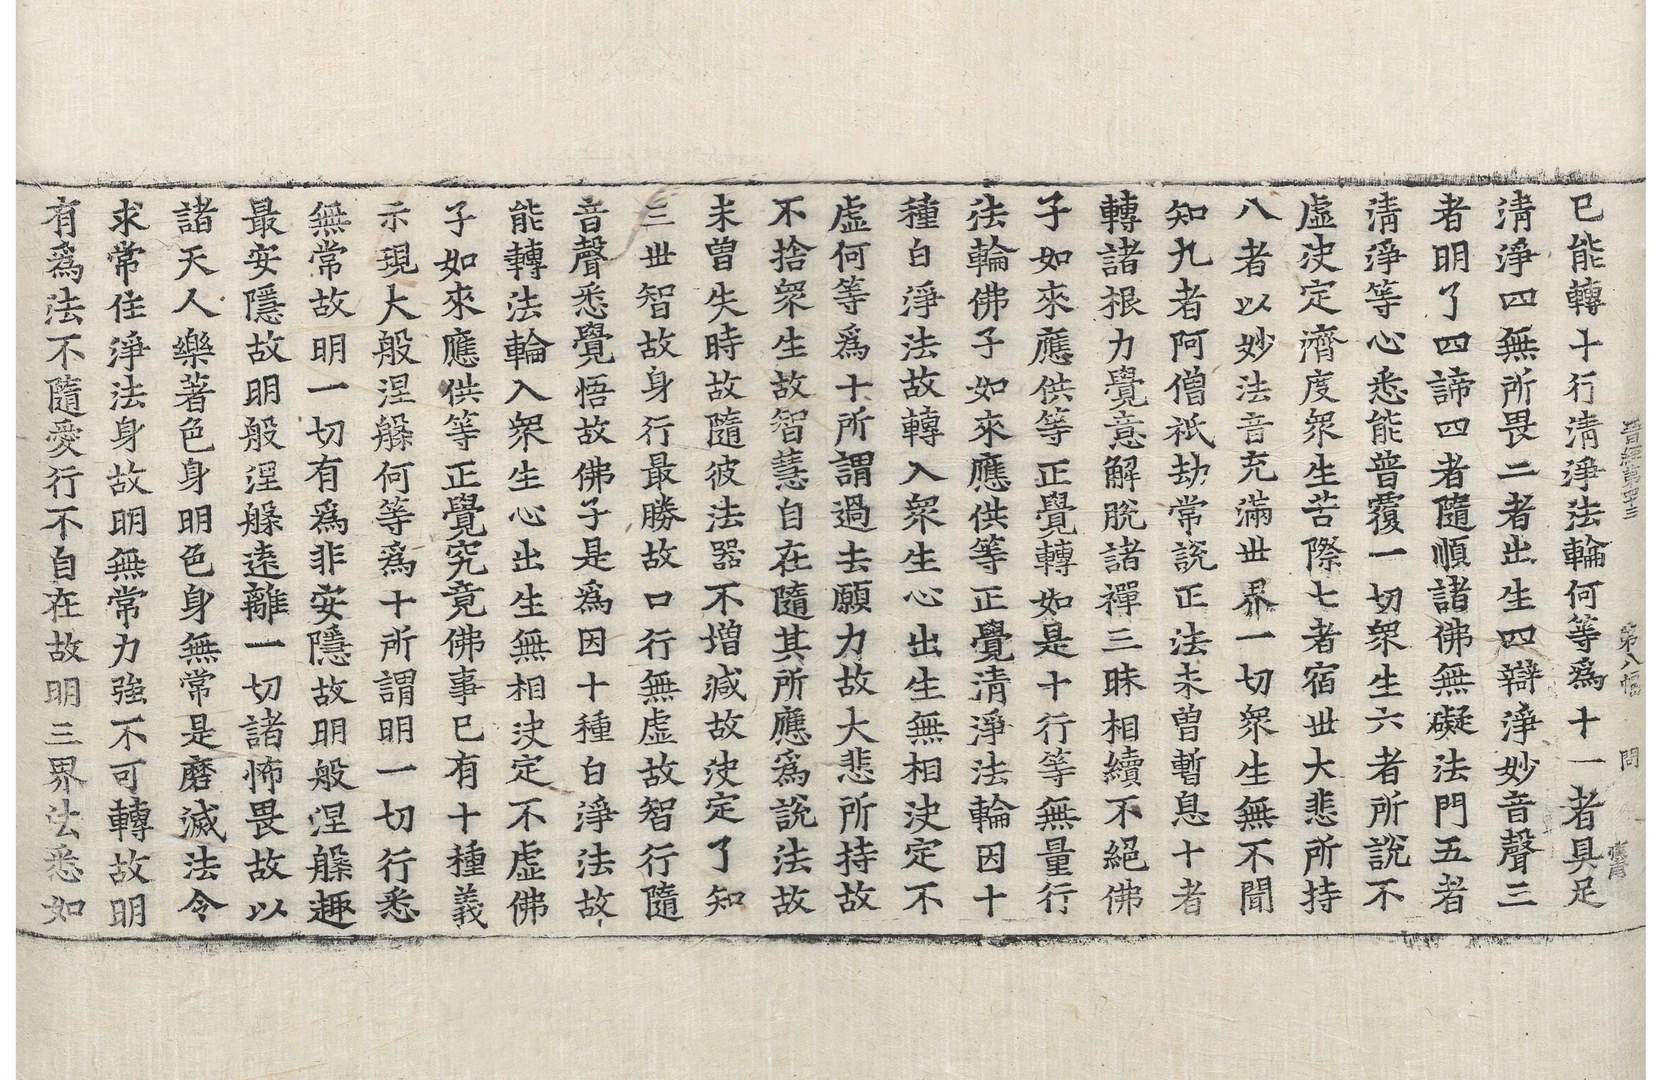 晋經第四十三 第八
已能轉十行清淨法輪何等爲十一者具足
清淨四無所畏二者出生四辯淨妙音聲三
者明了四諦四者隨順諸佛無礙法門五者
清淨等心悉能普覆一切衆生六者所說不
虛決定濟度衆生苦際七者宿世大悲所持
八者以妙法音充滿世界一切衆生無不聞
知九者阿僧祇劫常說正法未曾暫息十者
轉諸根力覺意解脫諸禪三昧相續不絕佛
子如來應供等正覺轉如是十行等無量行
法輪佛子如來應供等正覺清淨法輪因十
種白淨法故轉入衆生心出生無相決定不
虛何等爲十所謂過去願力故大悲所持故
不捨衆生故智慧自在隨其所應爲說法故
未曾失時故隨彼法器不增減故決定了知
三世智故身行最勝故口行無虛故智行隨
音聲悉覺悟故佛子是爲因十種白淨法故
能轉法輪入衆生心出生無相決定不虛佛
子如來應供等正覺究竟佛事已有十種義
示現大般涅槃何等爲十所謂明一切行悉
無常故明一切有爲非安隱故明般涅槃趣
最安隱故明般涅槃遠離一切諸怖畏故以
諸天人樂著色身明色身無常是磨滅法令
求常住淨法身故明無常力強不可轉故明
有爲法不隨愛行不自在故明三界法悉如